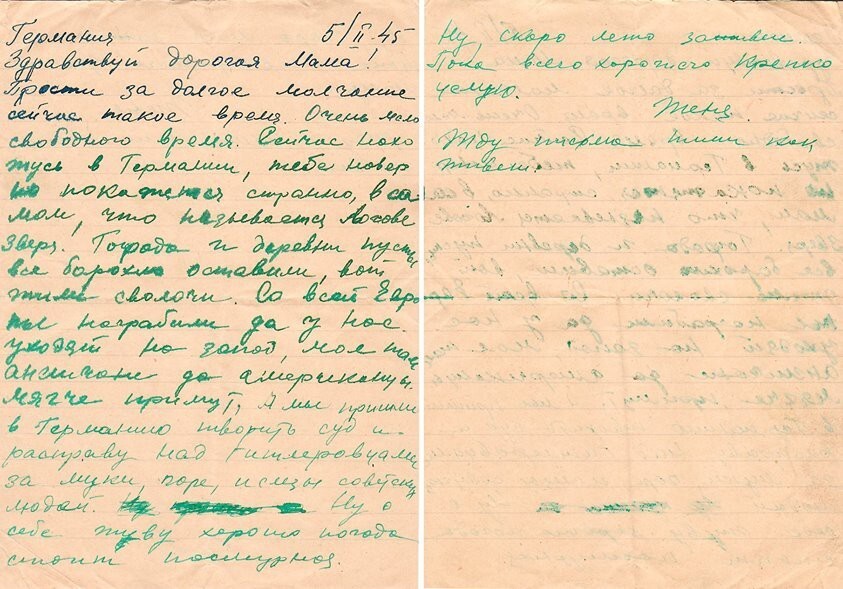 Германия 5/II.45
Здравствуй дорогая Мама!
Прости за долгое молчание
сейчас такое время. Очень мало
свободного время. Сейчас нахо
жусь в Германии, тебе навер
но покажется странно, в са
мом, что называется логове
зверя. Города и деревни пусты
все барахло оставили, вот
жили сволочи. Со всей Евро
пы награбили да у нас.
уходят на запад, мол там
англичане да американцы.
мягче примут, А мы пришли
в Германию творить суд и
расправу над гитлеровцами
за муки, горе, и слёзы советских
людей. Ну о
себе живу хорошо погода
стоит пасмурная.
Ну, скоро лето
Пока всего хорошего Крепко
целую.
Женя.
Жду письма пиши как
живёт.